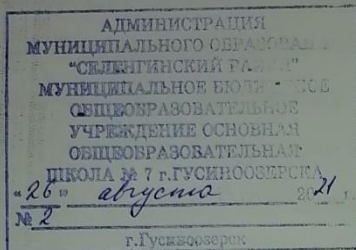 АДМИНИСТРАЦИЯ
МУНИЦИПАЛЬНОГО ОБРАЗОВАН
"СЕЛЕНГИНСКИЙ РАЙОН"
МУНИЦИПАЛЬНОЕ БЮДЖЕТНОЕ
ОБЩЕОБРАЗОВАТЕЛЬНОЕ
УЧРЕЖДЕНИЕ ОСНОВНАЯ
ОБЩЕОБРАЗОВАТЕЛЬНАЯ
ШКОЛА № 7 г.ГУСИНООЗЕРСКА
"26" августа 2021 г.
№ 2
г.Гусиноозерск